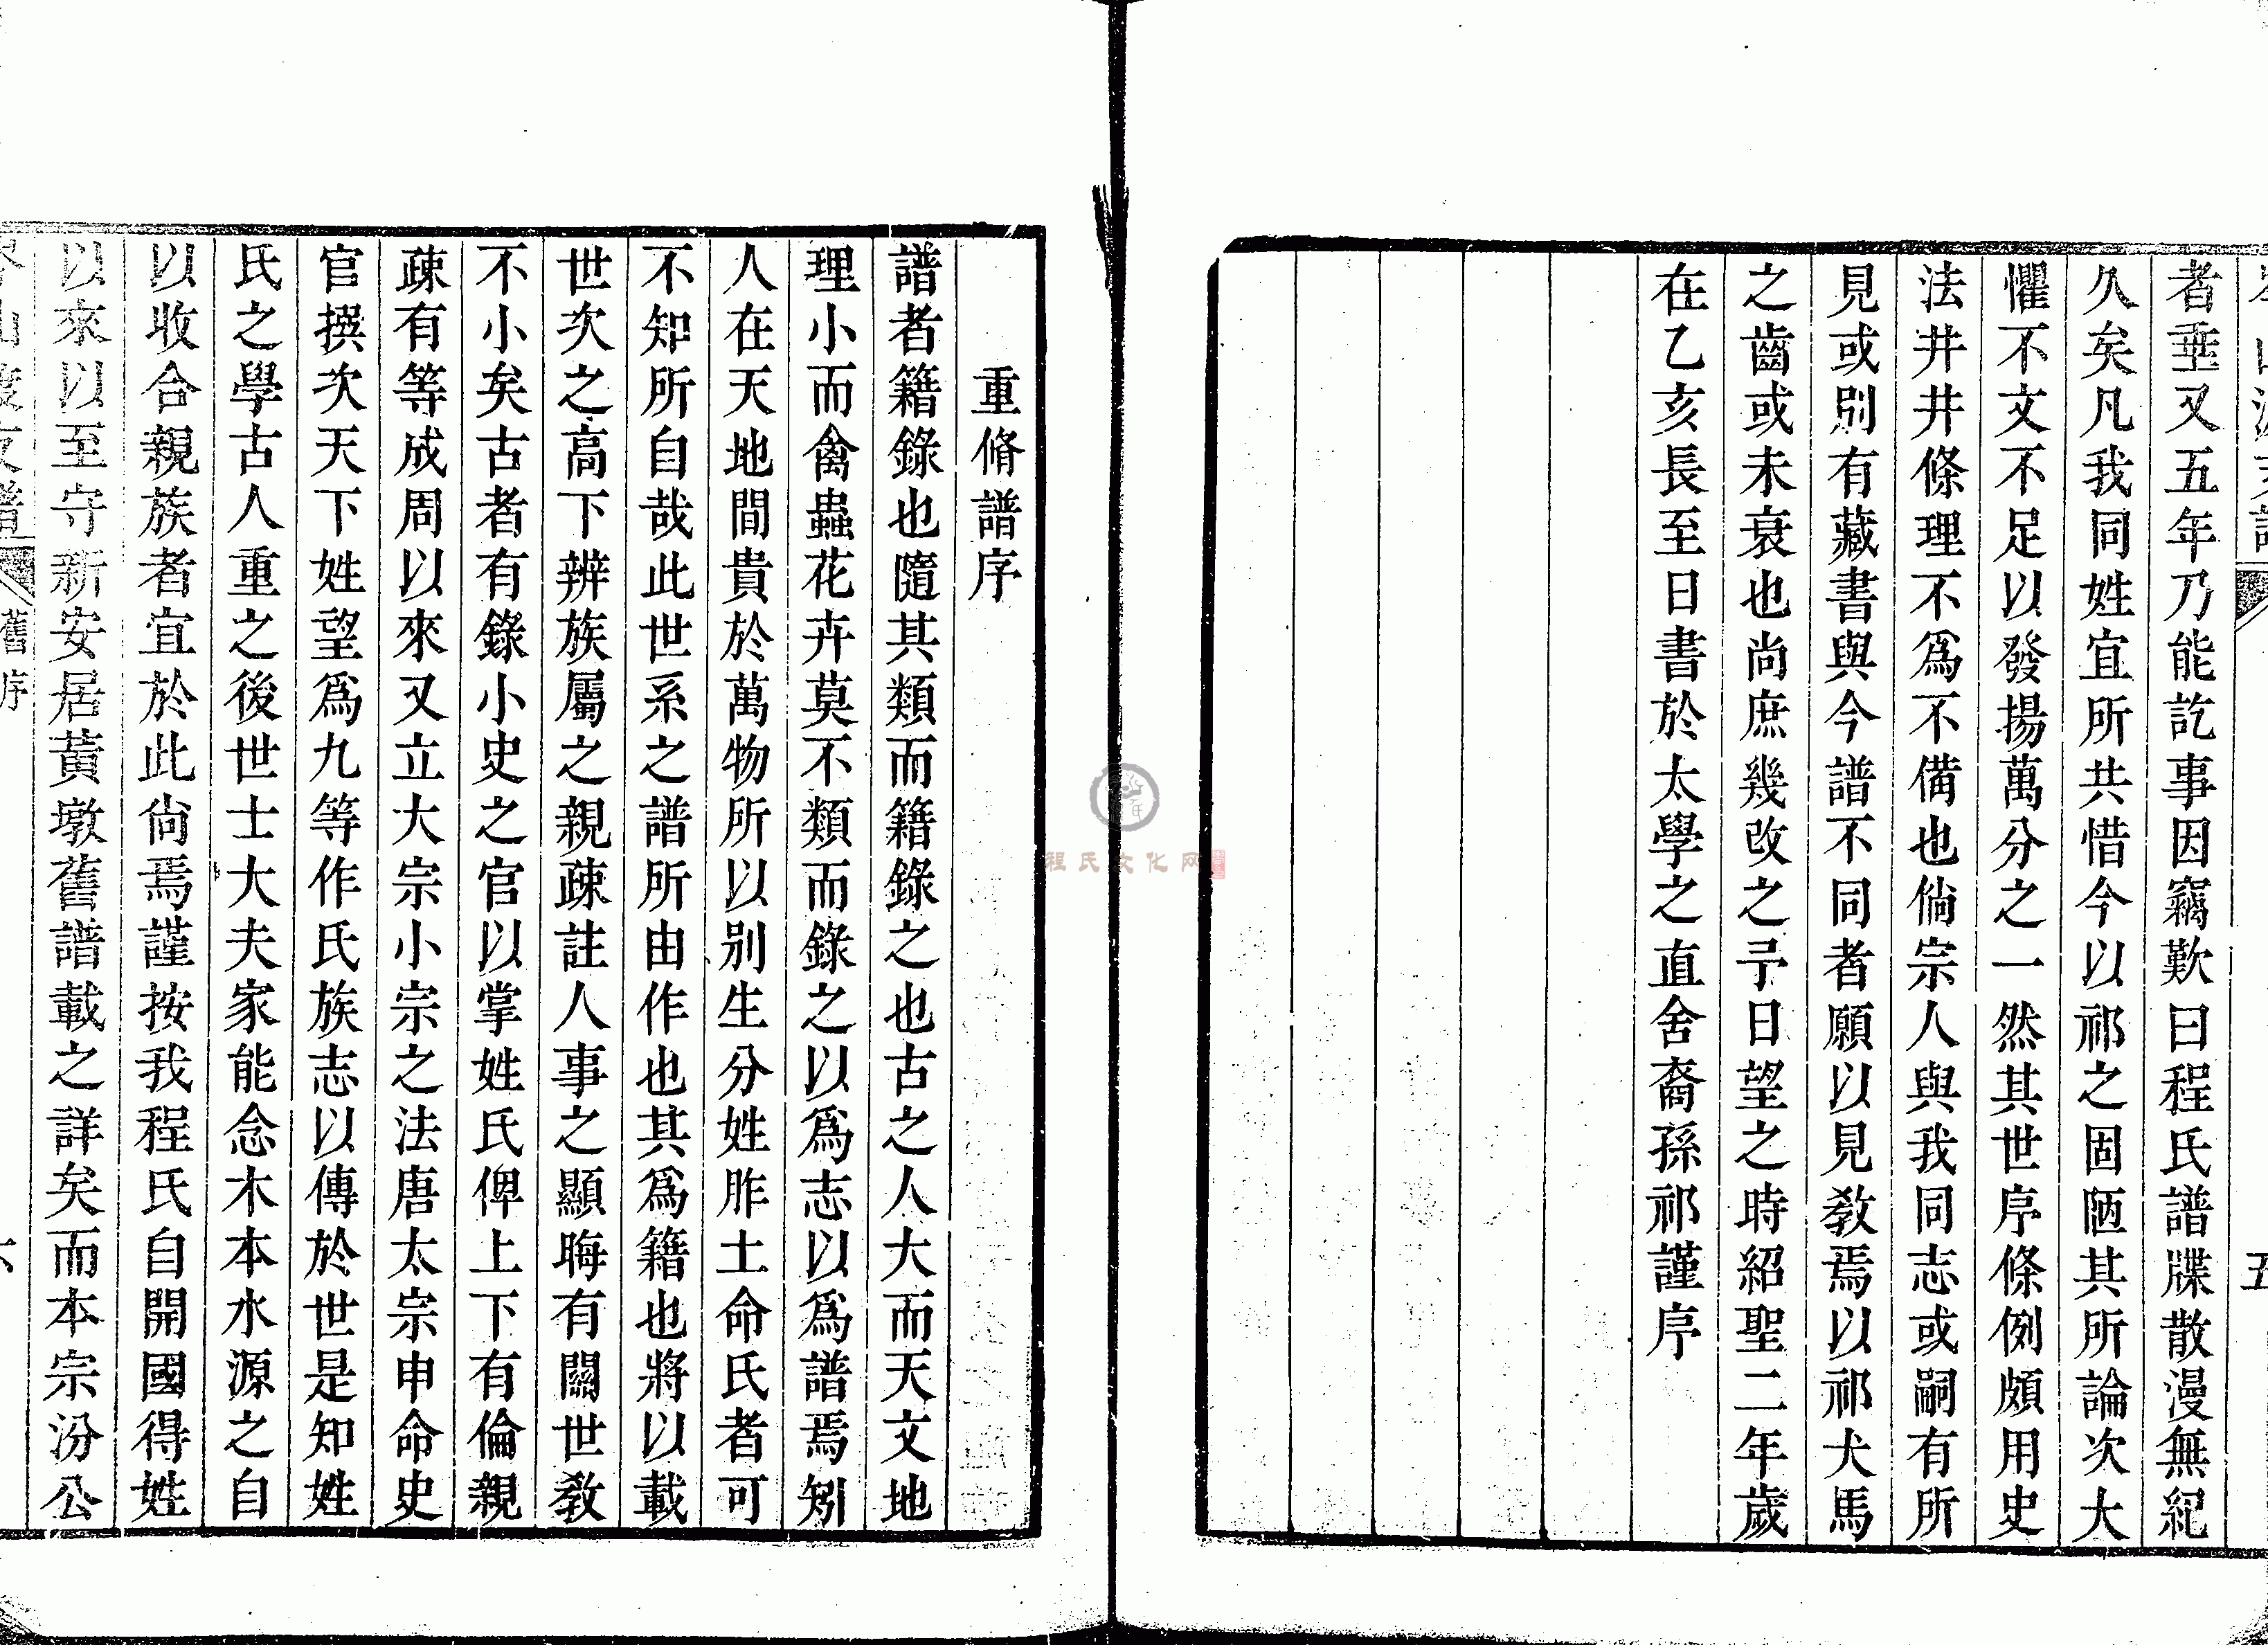 五
者垂又五年乃能訖事因竊歎曰程氏譜牒散漫無紀
久矣凡我同姓宜所共惜今以祁之固陋其所論次大
懼不文不足以發揚萬分之一然其世序條例頗用史
法井井條理不爲不備也倘宗人與我同志或嗣有所
見或別有藏書與今譜不同者願以見敎焉以祁犬馬
之齒或未衰也尚庶幾改之予日望之時紹聖二年歲
在乙亥長至日書於太學之直舍裔孫祁謹序
重脩譜序
譜者籍錄也隨其類而籍錄之也古之人大而天文地
理小而禽蟲花卉莫不類而錄之以爲志以爲譜焉矧
人在天地間貴於萬物所以别生分姓胙土命氏者可
不知所自哉此世系之譜所由作也其爲籍也將以載
世次之高下辨族屬之親疎註人事之顯晦有關世敎
不小矣古者有錄小史之官以掌姓氏俾上下有倫親
疎有等成周以來又立大宗小宗之法唐太宗申命史
官撰次天下姓望爲九等作氏族志以傳於世是知姓
氏之學古人重之後世士大夫家能念木本水源之自
以收合親族者宜於此尙焉謹按我程氏自開國得姓
以來以至守新安居黃墩舊譜載之詳矣而本宗汾公
舊序
程氏文化网